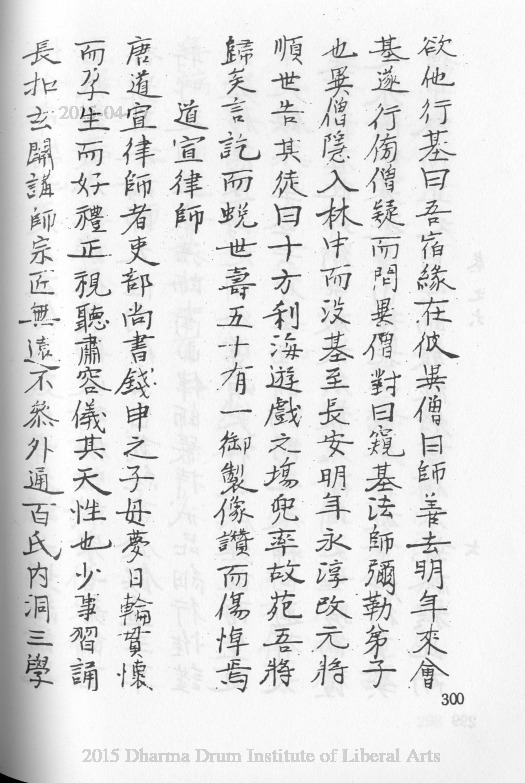 欲他行基曰吾宿緣在彼異僧曰師善去明年來會
基遂行傍僧疑而問異僧對曰窺基法師彌勒弟子
也異僧隱入林中而没基至長安明年永淳改元將
順世告其徒曰十方刹海遊戲之塲兜率故苑吾將
歸矣言訖而蛻世壽五十有一御製像讚而傷悼焉
道宣律師
唐道宣律師者吏部尚書錢申之子母夢日輪貫懷
而孕生而好禮正視聽肅容儀其天性也少事習誦
長扣玄關講師宗匠無遠不叅外通百氏内洞三學
300
2015 Dharma Drum Institute of Liberal Arts